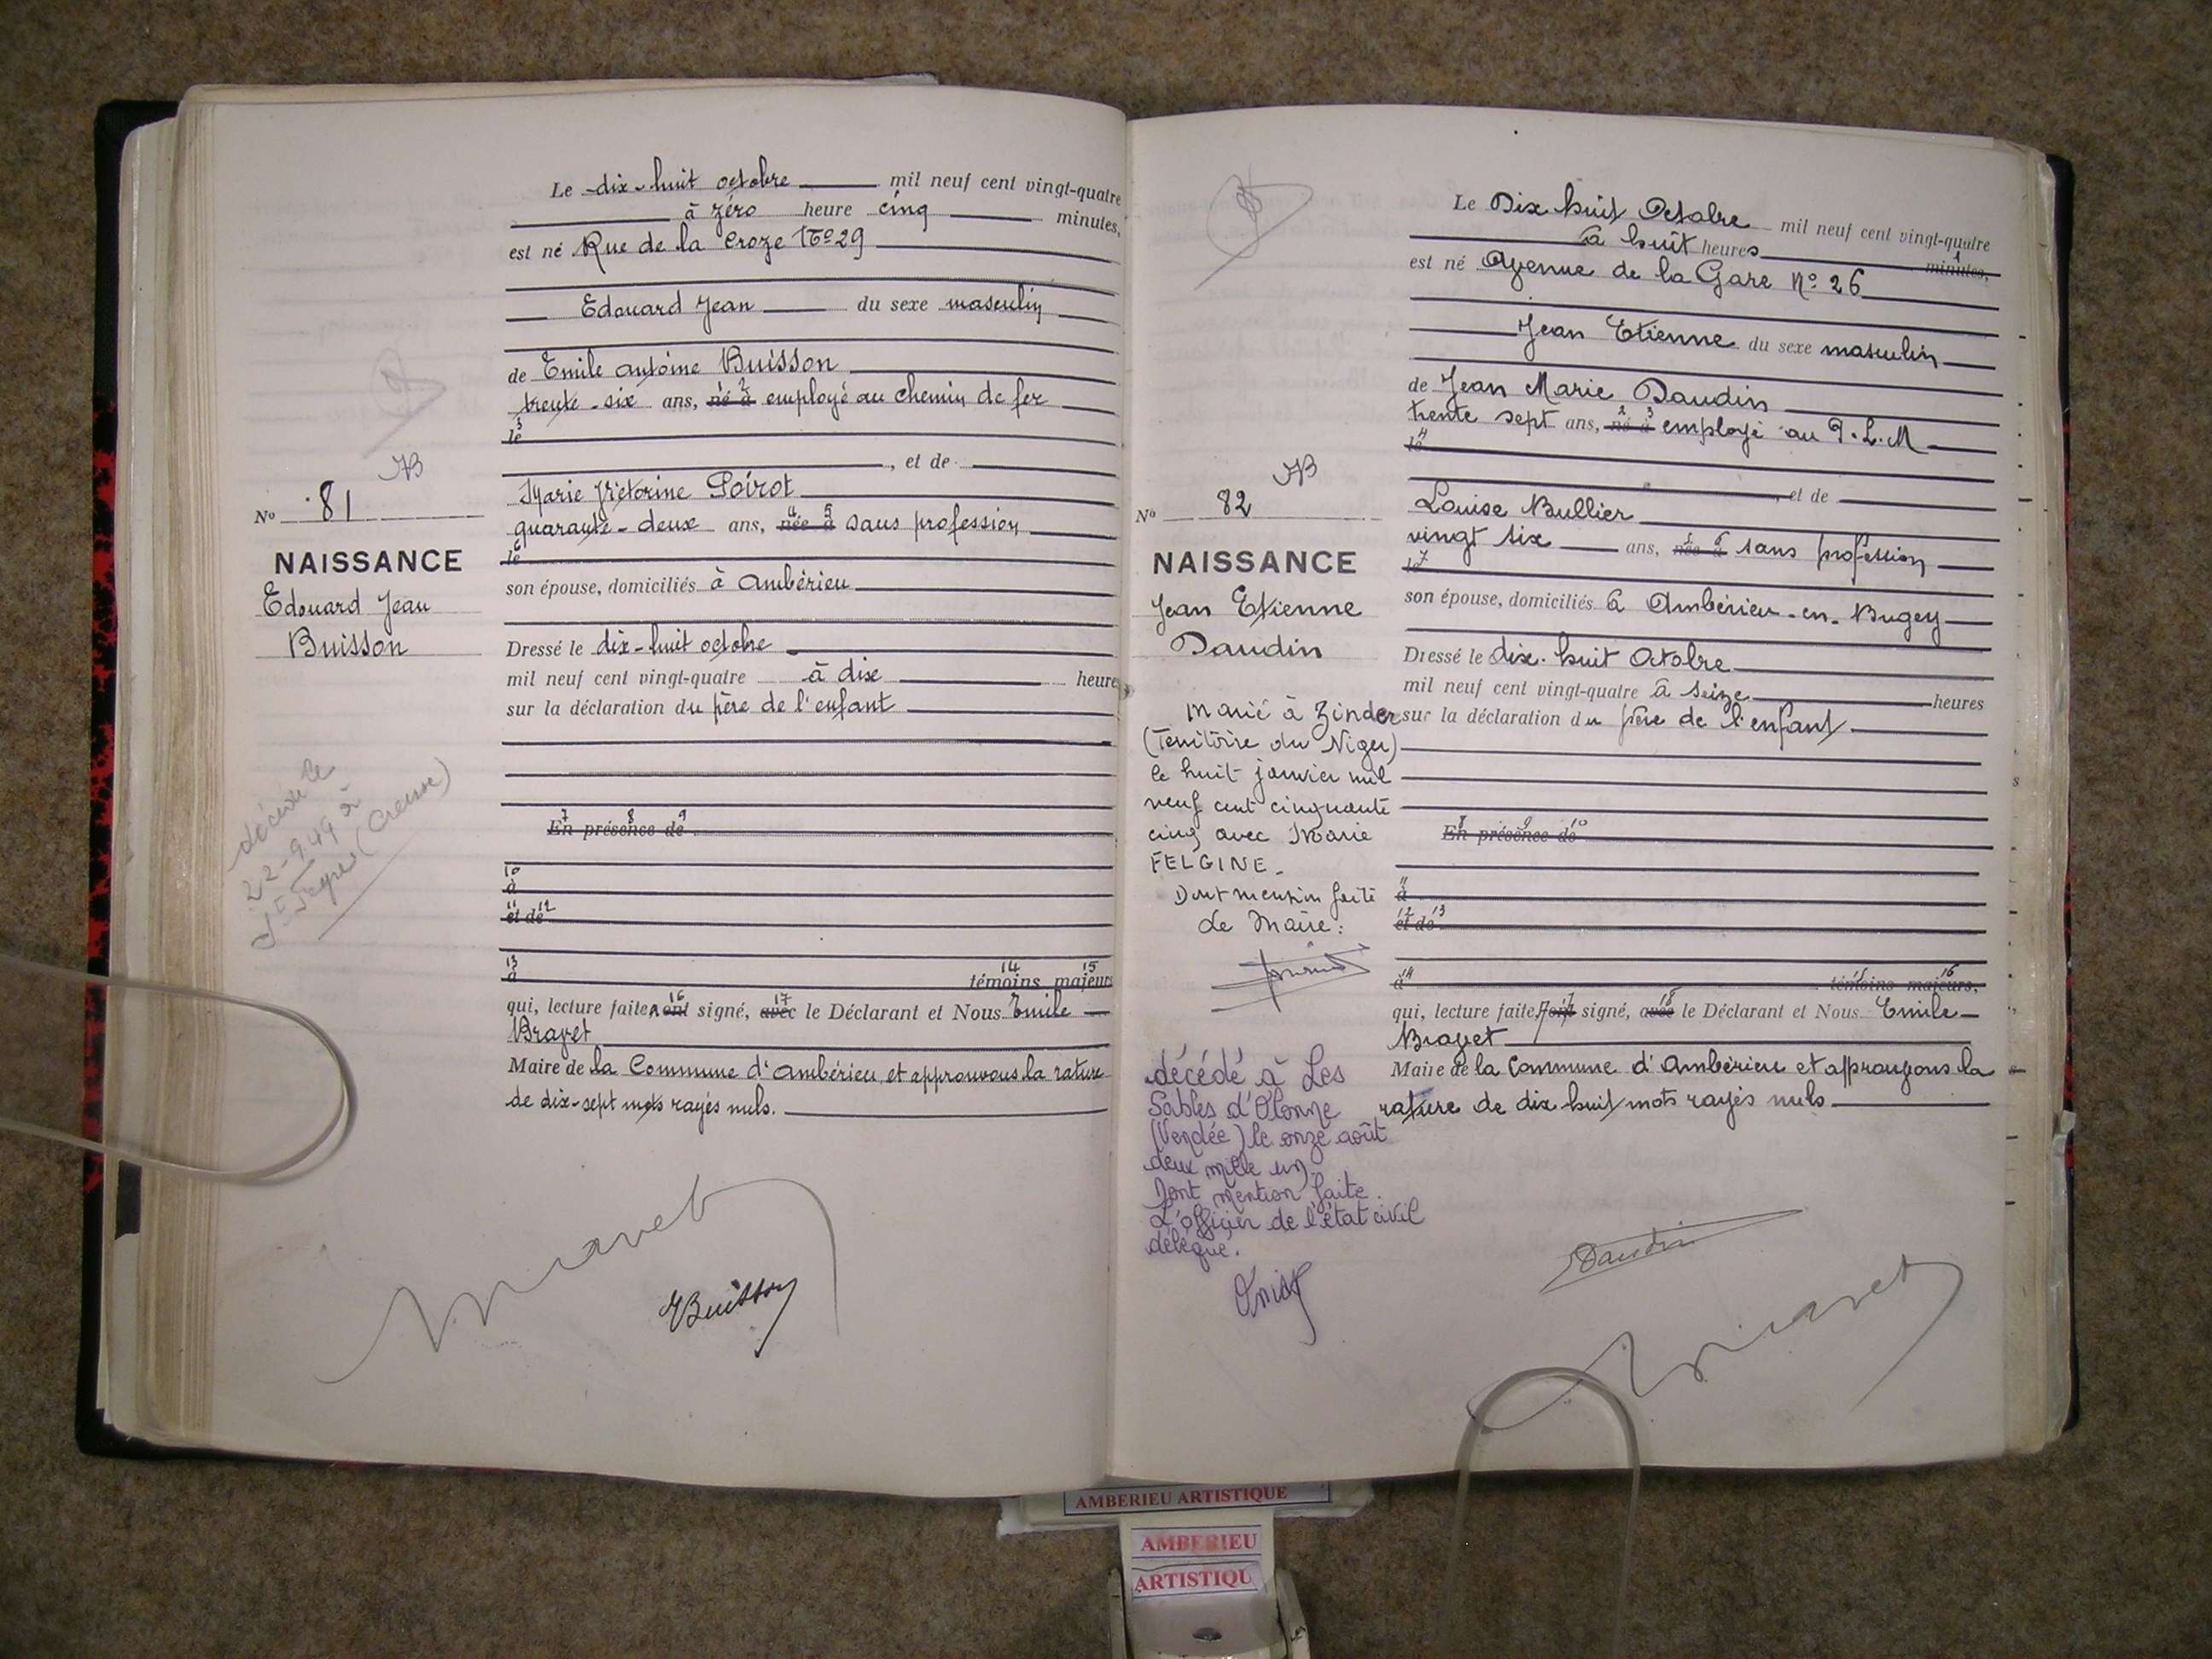 Le dix-huit octobre mil neuf cent vingt-quatre
à zéro heure cinq minutes,
est né Rue de la Croze No 29
Edouard Jean du sexe masculin
de Emile Antoine Buisson
trente-six ans, né à employé au chemin de fer
le
, et de
Marie Victorine Poirot
quarante-deux ans, née à sans profession
le
son épouse, domiciliés à Ambérieu
Dressé le dix-huit octobre
mil neuf cent vingt-quatre à dix heure
sur la déclaration du père de l'enfant
En présence de
à
et de
à témoins majeurs
qui, lecture faite, ont signé, avec le Déclarant et Nous Emile
Bravet
Maire de la Commune d'Ambérieu, et approuvons la rature
de dix-sept mots rayés nuls.
Bravet
Buisson
No 81
NAISSANCE
Edouard Jean
Buisson
décédé le
22-9-49 à
(Creuse)
Le Dix huit Octobre mil neuf cent vingt-quatre
à huit heures minutes,
est né Avenue de la Gare No 26
Jean Etienne du sexe masculin
de Jean Marie Daudin
trente sept ans, né à employé au P.L.M
le
, et de
Louise Bullier
vingt six ans, née à sans profession
le
son épouse, domiciliés à Ambérieu-en-Bugey
Dressé le dix-huit Octobre
mil neuf cent vingt-quatre à seize heures
sur la déclaration du père de l'enfant
En présence de
à
et de
à témoins majeurs,
qui, lecture faite, ont signé, avec le Déclarant et Nous Emile
Bravet
Maire de la Commune d'Ambérieu et approuvons la
rature de dix huit mots rayés nuls
Daudin
Bravet
No 82
NAISSANCE
Jean Etienne
Daudin
Marié à Zinder
(Territoire du Niger)
le huit janvier mil
neuf cent cinquante
cinq avec Marie
FELGINE.
Dont mention faite
Le Maire:
décédé à Les
Sables d'Olonne
(Vendée) le onze août
deux mille un
Dont mention faite.
L'officier de l'état civil
délégué.
AMBERIEU ARTISTIQUE
AMBERIEU
ARTISTIQU